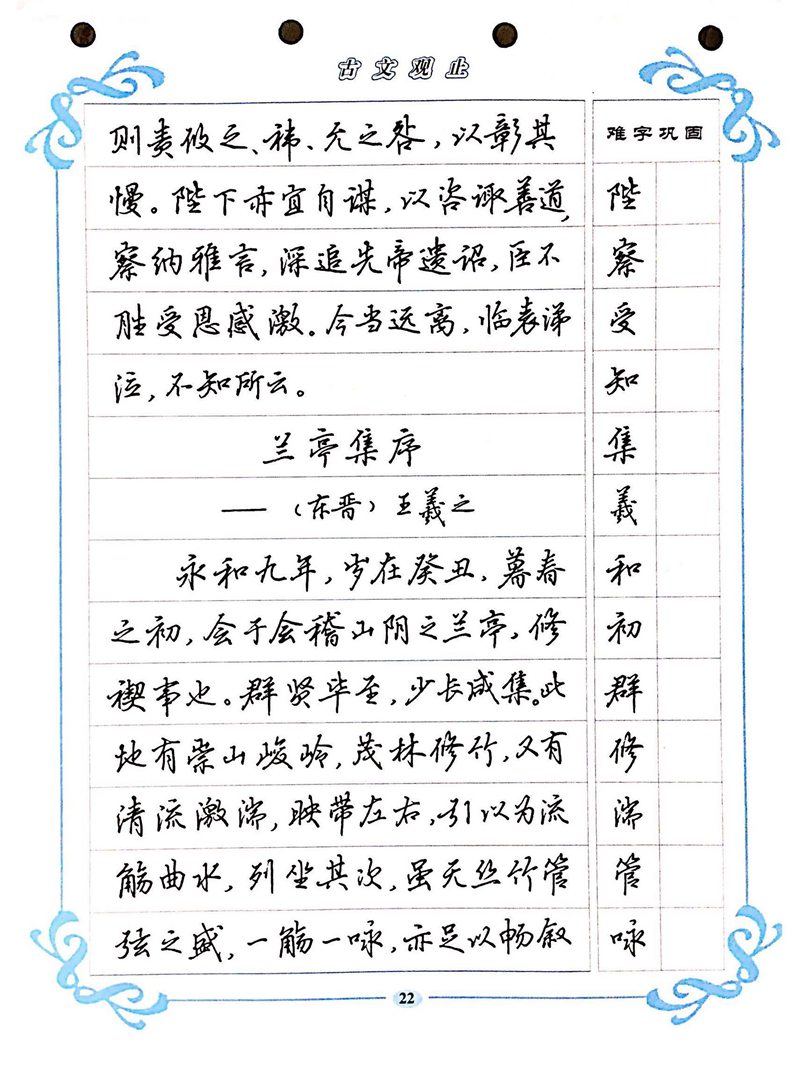 古文观止
则责攸之、祎、允之咎，以彰其
慢。陛下亦宜自谋，以咨诹善道，
察纳雅言，深追先帝遗诏，臣不
胜受恩感激。今当远离，临表涕
泣，不知所云。
兰亭集序
——（东晋）王羲之
永和九年，岁在癸丑，暮春
之初，会于会稽山阴之兰亭，修
禊事也。群贤毕至，少长咸集。此
地有崇山峻岭，茂林修竹，又有
清流激湍，映带左右，引以为流
觞曲水，列坐其次，虽无丝竹管
弦之盛，一觞一咏，亦足以畅叙
难字巩固
陛
察
受
知
集
羲
和
初
群
修
湍
管
咏
22